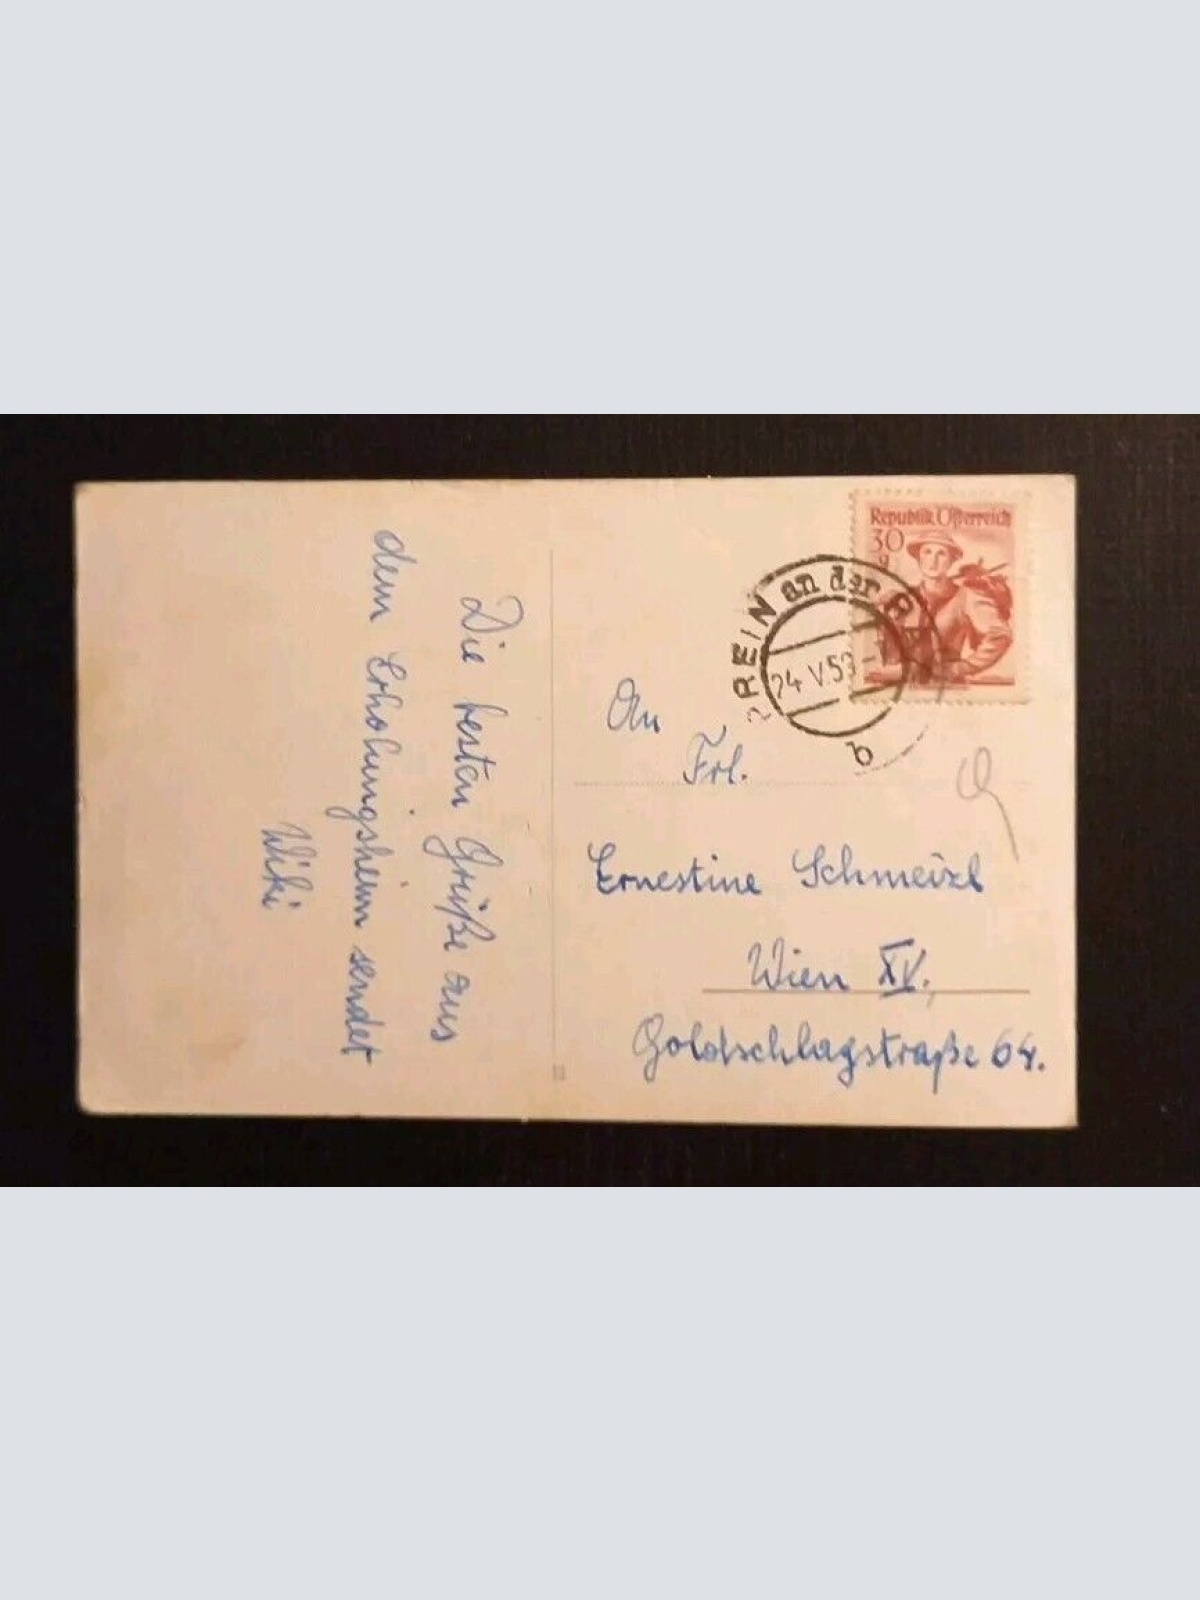 Die besten Grüße aus
dem Erholungsheim sendet
Wiki
Republik Österreich
30
g
PREIN an der
24.V.53
b
An
Frl.
Ernestine Schmeizl
Wien XV.,
Goldschlagstraße 64.